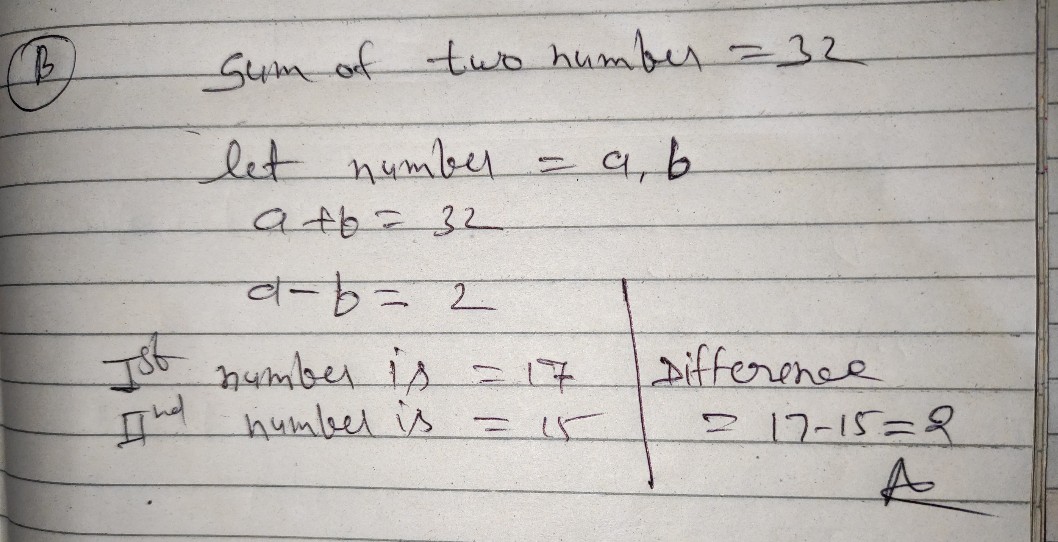 B
Sum of two number = 32
let number = a, b
a + b = 32
a - b = 2
Ist number is = 17
IInd number is = 15
Difference
= 17-15=2
A